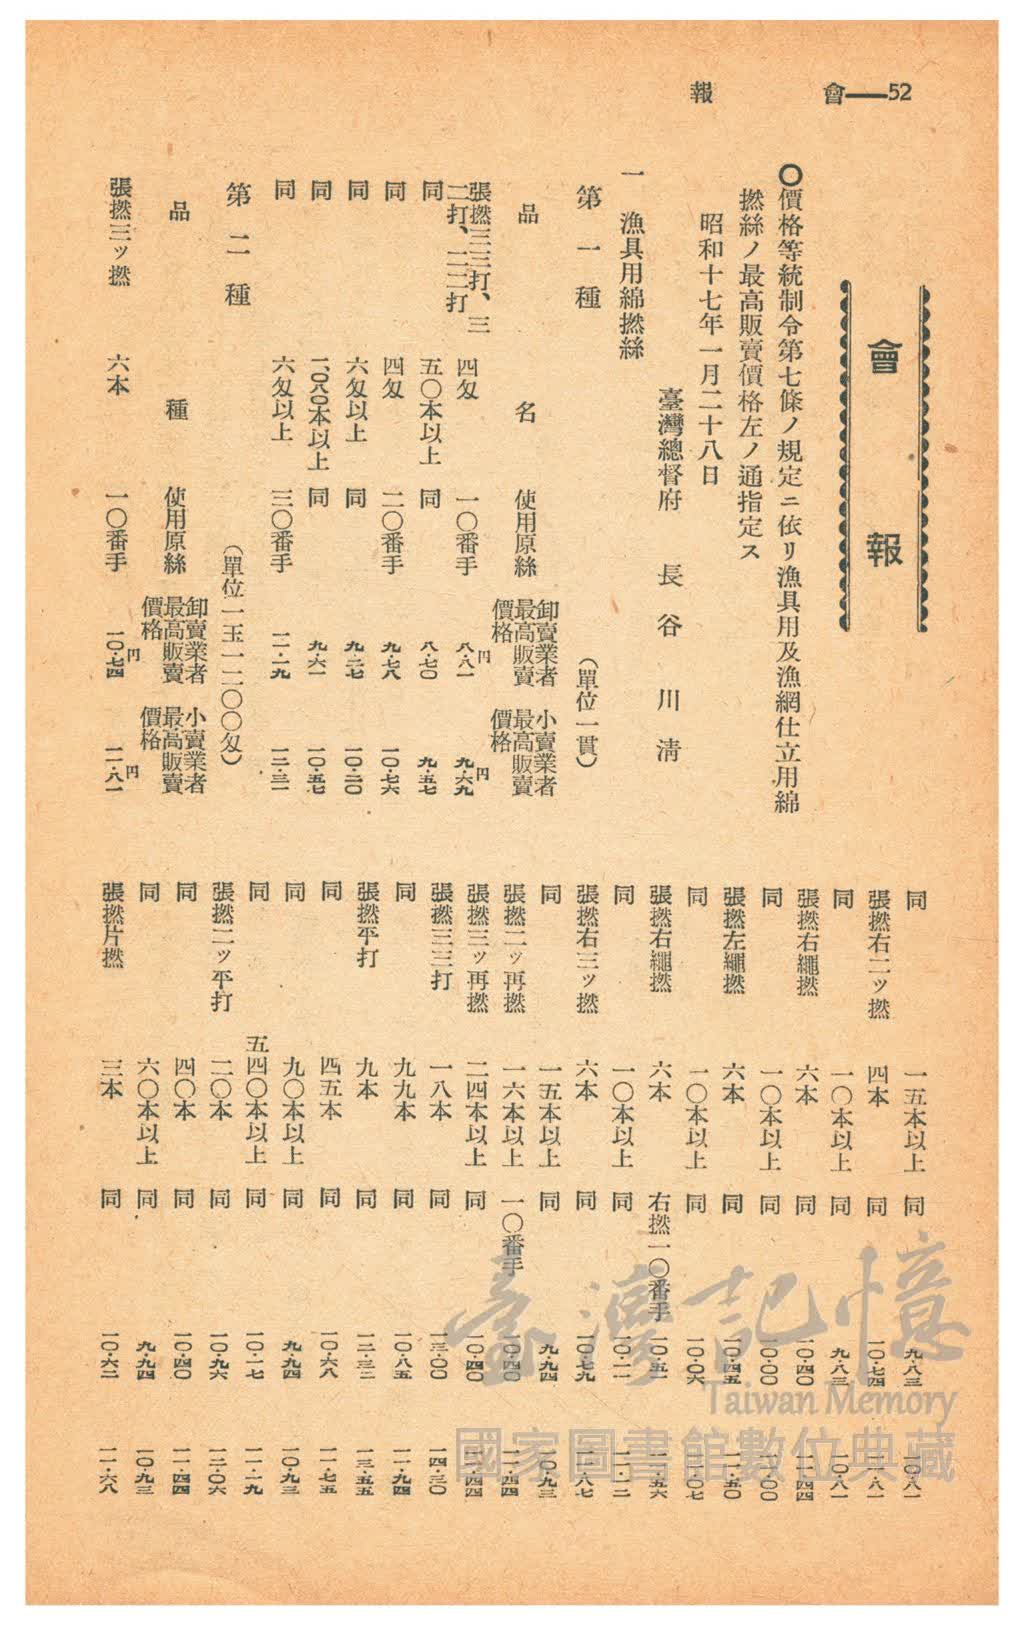 會——52
報
會報
〇價格等統制令第七條ノ規定ニ依リ漁具用及漁網仕立用綿
撚絲ノ最高販賣價格左ノ通指定ス
昭和十七年一月二十八日
臺灣總督府 長谷川淸
一 漁具用綿撚絲
第一種 (單位一貫)
品名 使用原絲 卸賣業者最高販賣價格 小賣業者最高販賣價格
張撚三三打、三二打、二二打 四匁 一〇番手 八・八一円 九・六九円
同 五〇本以上 同 八・七〇 九・五七
同 四匁 二〇番手 九・七八 一〇・七六
同 六匁以上 同 九・二七 一〇・二〇
同 一、〇八〇本以上 同 九・六一 一〇・五七
同 六匁以上 三〇番手 一一・一九 一二・三一
第二種 (單位一玉一二〇〇匁)
品種 使用原絲 卸賣業者最高販賣價格 小賣業者最高販賣價格
張撚三ッ撚 六本 一〇番手 一〇・七四円 一一・八一円
同 一五本以上 同 九・八三 一〇・八一
張撚右二ッ撚 四本 同 一〇・七四 一一・八一
同 一〇本以上 同 九・八三 一〇・八一
張撚右繩撚 六本 同 一〇・四〇 一一・四四
同 一〇本以上 同 一〇・〇〇 一一・〇〇
張撚左繩撚 六本 同 一〇・四五 一一・五〇
同 一〇本以上 同 一〇・〇六 一一・〇七
張撚右繩撚 六本 右撚一〇番手 一〇・五一 一一・五六
同 一〇本以上 同 一〇・一一 一一・一二
張撚右三ッ撚 六本 同 一〇・七九 一一・八七
同 一五本以上 同 九・九四 一〇・九三
張撚二ッ再撚 一六本以上 一〇番手 一〇・四〇 一一・四四
張撚三ッ再撚 二四本以上 同 一〇・四〇 一一・四四
張撚三三打 一八本 同 一三・〇〇 一四・三〇
同 九九本 同 一〇・八五 一一・九四
張撚平打 九本 同 一二・三二 一三・五五
同 四五本 同 一〇・六八 一一・七五
同 九〇本以上 同 九・九四 一〇・九三
同 五四〇本以上 同 一〇・一七 一一・一九
張撚二ッ平打 二〇本 同 一〇・九六 一二・〇六
同 四〇本 同 一〇・四〇 一一・四四
同 六〇本以上 同 九・九四 一〇・九三
張撚片撚 三本 同 一〇・六二 一一・六八
臺灣記憶
Taiwan Memory
國家圖書館數位典藏